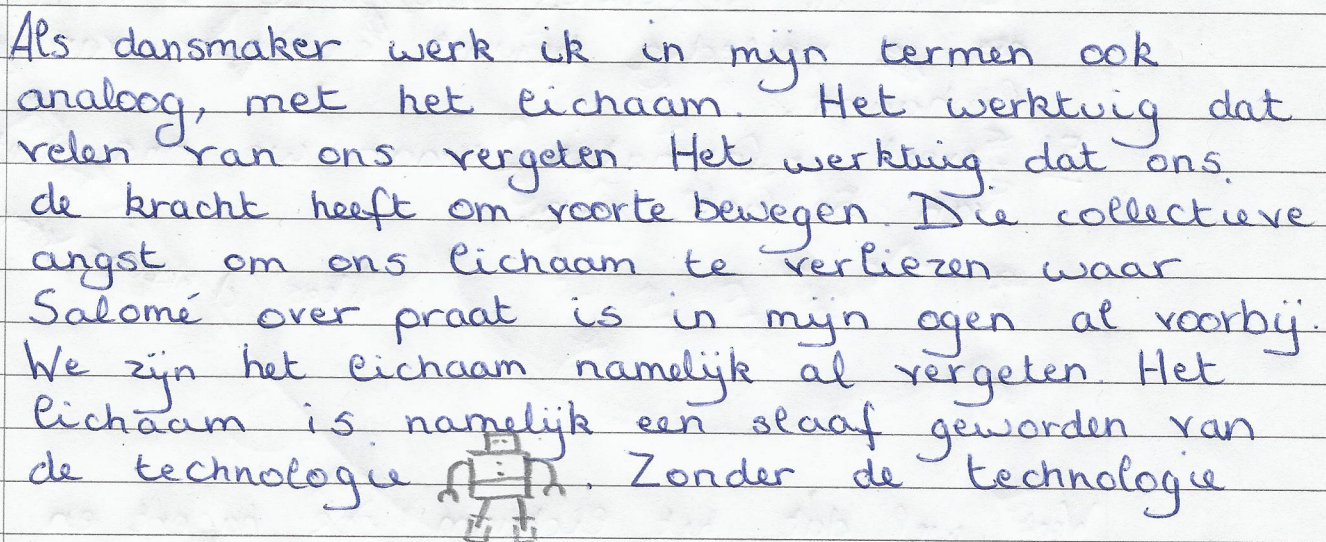 Als dansmaker werk ik in mijn termen ook
analoog, met het lichaam. Het werktuig dat
velen van ons vergeten. Het werktuig dat ons
de kracht heeft om voorte bewegen. Die collectieve
angst om ons lichaam te verliezen waar
Salomé over praat is in mijn ogen al voorbij.
We zijn het lichaam namelijk al vergeten. Het
lichaam is namelijk een slaaf geworden van
de technologie . Zonder de technologie